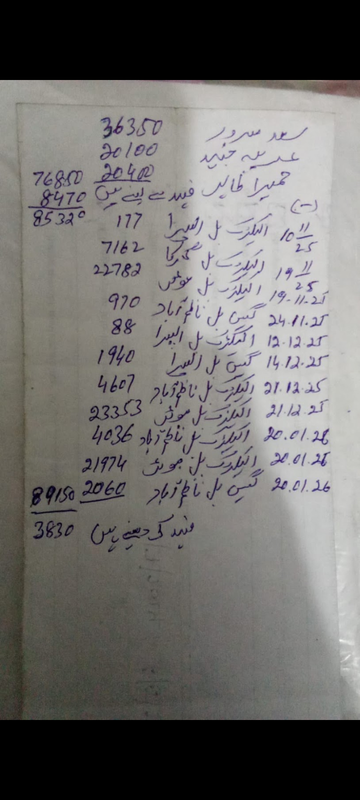 سعد سرور 36350
عدسہ جنید 20100
حمیرا طالب 20400 76850
فہد سے لینے ہیں 8470
85320
(-)
10 11/25 الیکٹرک بل السیرا 177
19 11/25 الیکٹرک بل 7162
19.11.25 الیکٹرک بل 22782
24.11.25 گیس بل ناظم آباد 970
12.12.25 الیکٹرک بل السیرا 88
14.12.25 گیس بل السیرا 1940
21.12.25 الیکٹرک بل ناظم آباد 4607
21.12.25 الیکٹرک بل 23353
20.01.26 الیکٹرک بل ناظم آباد 4036
20.01.26 الیکٹرک بل 21974
20.01.26 گیس بل ناظم آباد 2060 89150
فہد کو دینے ہیں 3830